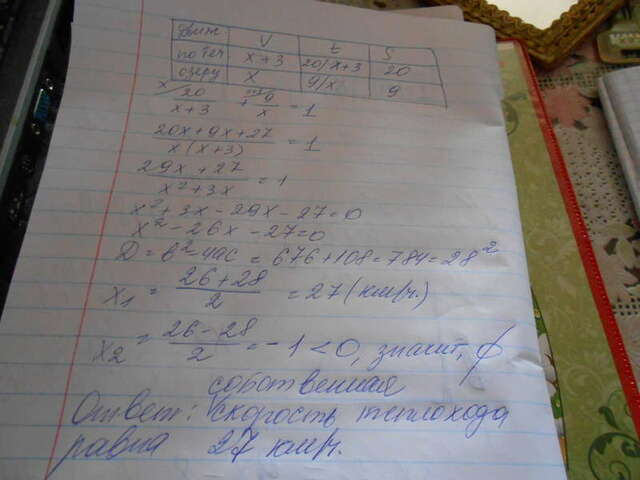 Движ V t S
по теч x+3 20/x+3 20
озеру x 9/x 9
x/ 20/x+3 + x+3/ 9/x = 1
20x+9x+27/x(x+3) = 1
29x+27/x²+3x = 1
x²+3x-29x-27=0
x²-26x-27=0
D=b²-4ac=676+108=784=28²
x₁ = 26+28/2 = 27(км/ч.)
x₂ = 26-28/2 = -1<0, значит, ф
собственная
Ответ: скорость теплохода
равна 27 км/ч.